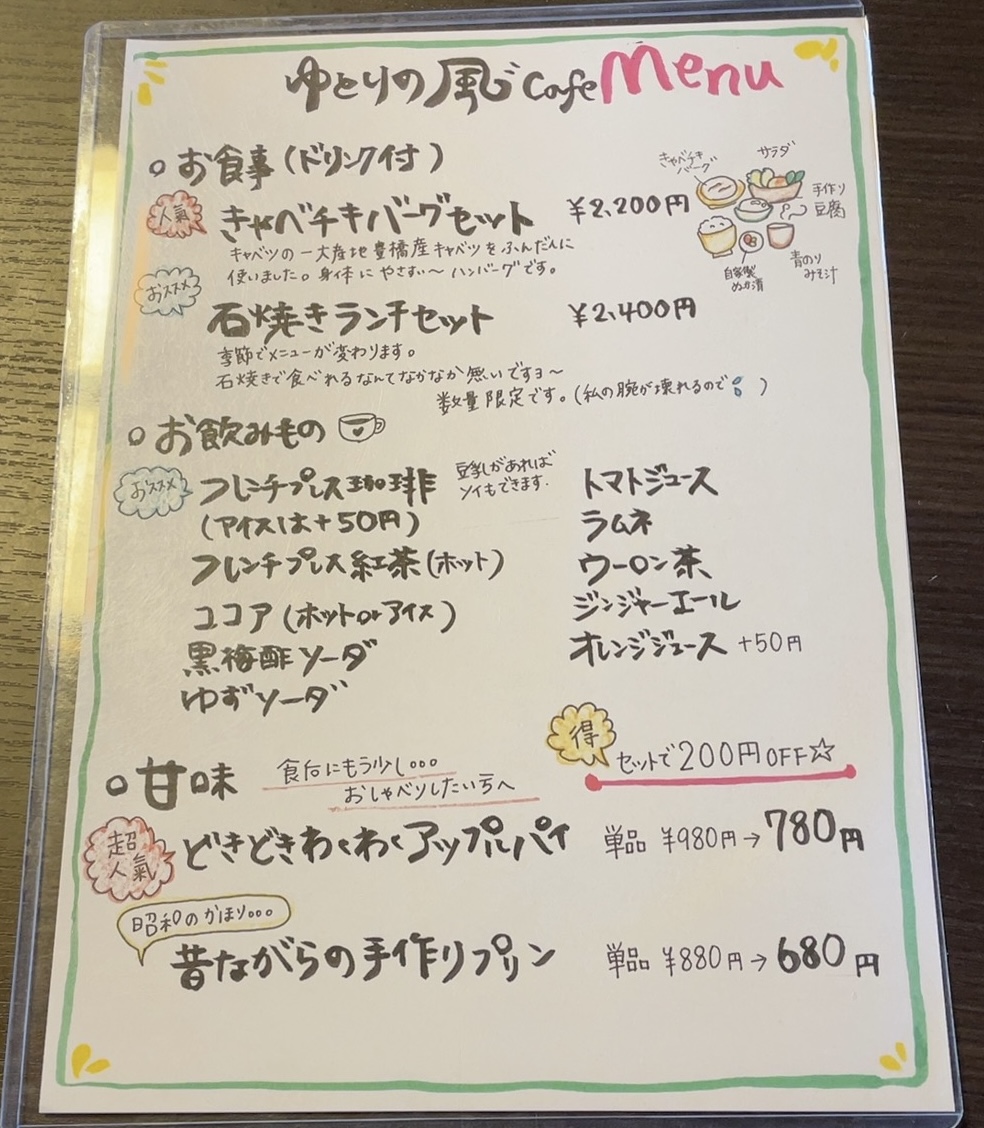 ゆとりの風 Cafe Menu
○ お食事(ドリンク付)
人氣 きゃべチキバーグセット ¥2,200円
キャベツの一大産地豊橋産キャベツをふんだんに
使いました。身体にやさすぃ〜ハンバーグです。
きゃべチキバーグ
サラダ
手作り豆腐
自家製ぬか漬
青のりみそ汁
おススメ
石焼きランチセット ¥2,400円
季節でメニューが変わります。
石焼きで食べれるなんてなかなか無いですョ〜
数量限定です。(私の腕が壊れるので)
○ お飲みもの
おススメ フレンチプレス珈琲 豆乳があればソイもできます.
(アイスは+50円)
フレンチプレス紅茶(ホット)
ココア(ホットorアイス)
黒梅酢ソーダ
ゆずソーダ
トマトジュース
ラムネ
ウーロン茶
ジンジャーエール
オレンジジュース +50円
得 セットで200円OFF☆
○ 甘味 食后にもう少し。。。
おしゃべりしたい方へ
超人氣 どきどきわくわくアップルパイ 単品 ¥980円→780円
昭和のかほり。。。
昔ながらの手作りプリン 単品 ¥880円→680円